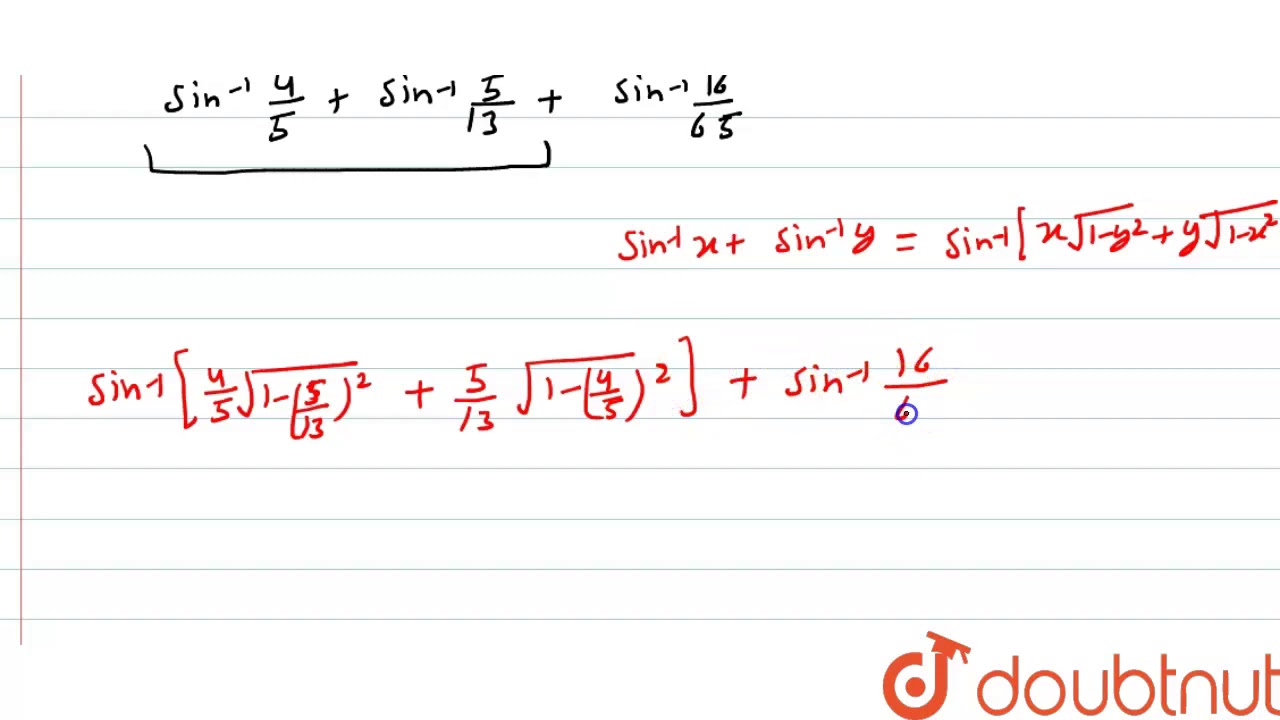 sin⁻¹ 4/5 + sin⁻¹ 5/13 + sin⁻¹ 16/65
sin⁻¹x + sin⁻¹y = sin⁻¹[x√1-y² + y√1-x²
sin⁻¹[4/5 √1-(5/13)² + 5/13 √1-(4/5)²] + sin⁻¹ 16/6
doubtnut